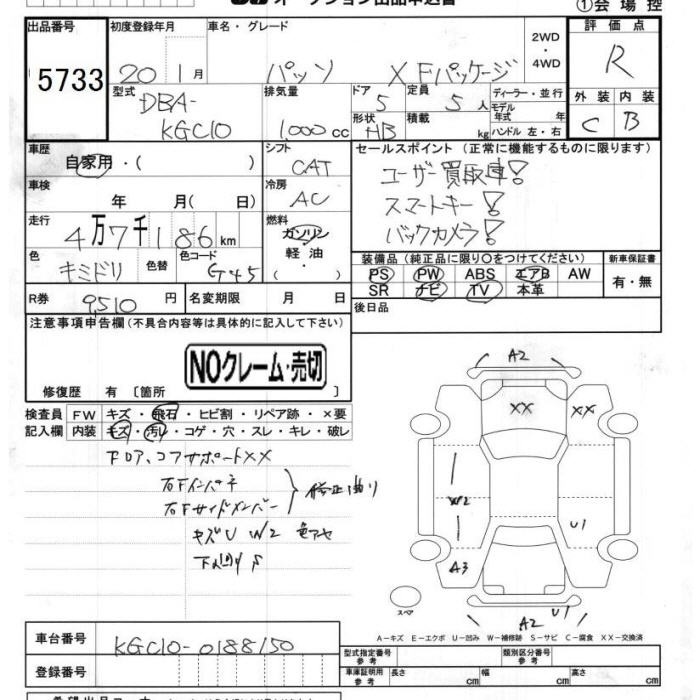 ①会場控
出品番号 初度登録年月 車名・グレード 2WD ・ 4WD 評価点
5733 20 1月 パッソ X Fパッケージ R
型式 排気量 ドア 定員 ディーラー・並行 外装 内装
DBA- 5 5人 モデル年式 年
KGC10 1,000cc 形状 HB 積載 kg ハンドル 左・右 C B
車歴 シフト セールスポイント (正常に機能するものに限ります)
自家用・( ) CAT ユーザー買取車!
車検 冷房 スマートキー!
年 月( 日) AC バックカメラ!
走行 燃料
4万7千186km ガソリン・軽油・( )
色 色替 色コード 装備品 (純正品に限り○をつけてください) 新車保証書
キミドリ G45 PS PW ABS エアB AW 有・無
SR ナビ TV 本革
R券 9,510円 名変期限 月 日 後日品
注意事項申告欄(不具合内容等は具体的に記入して下さい)
NOクレーム・売切
修復歴 有 [箇所 ]
検査員 FW キズ・飛石・ヒビ割・リペア跡・×要
記入欄 内装 キズ・汚れ・コゲ・穴・スレ・キレ・破レ
コアサポートXX
右Fインパネ
右Fサイドメンバー
キズU W2 色アセ
A2
XX XX
W2
U1
A3
A2 U1
スペア
A-キズ E-エクボ U-凹み W-補修跡 S-サビ C-腐食 XX-交換済
車台番号 KGC10-0188150
登録番号
型式指定番号 参考 類別区分番号 参考
車庫証明用 参考 長さ cm 幅 cm 高さ cm